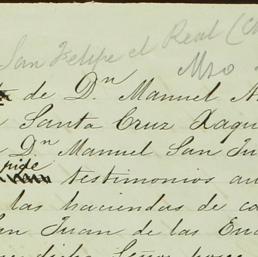 San Felipe el Real (Ch
Mro
de Dn Manuel A
Santa Cruz Xaqu
Dn Manuel San Ju
pide
testimonios au
las haciendas de ca
an Juan de las En